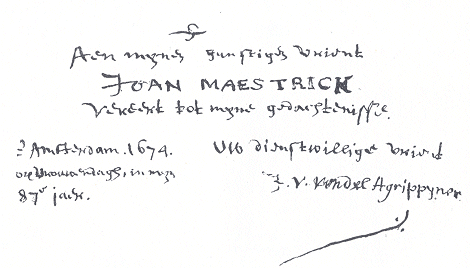 Aen mynen gunstigen vrient
JOAN MAESTRICK
Vereert tot myne gedachtenisse.
t'Amsterdam. 1674.
op vrouwendagh, in myn
87e jaer.
Uw dienstwillige vrient
J. V. Vondel Agrippyner